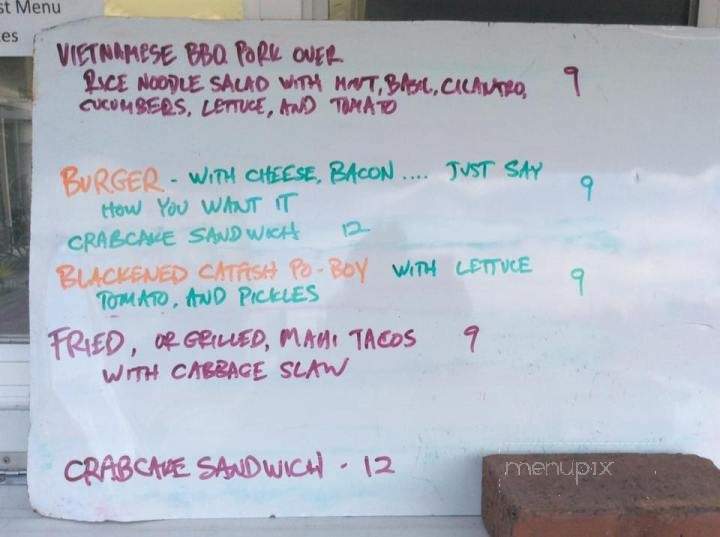 st Menu
es
VIETNAMESE BBQ PORK OVER
RICE NOODLE SALAD WITH MINT, BASIL, CILANTRO, 9
CUCUMBERS, LETTUCE, AND TOMATO
BURGER - WITH CHEESE, BACON .... JUST SAY 9
HOW YOU WANT IT
CRABCAKE SANDWICH 12
BLACKENED CATFISH PO-BOY WITH LETTUCE 9
TOMATO, AND PICKLES
FRIED, OR GRILLED, MAHI TACOS 9
WITH CABBAGE SLAW
CRABCAKE SANDWICH - 12
menupix